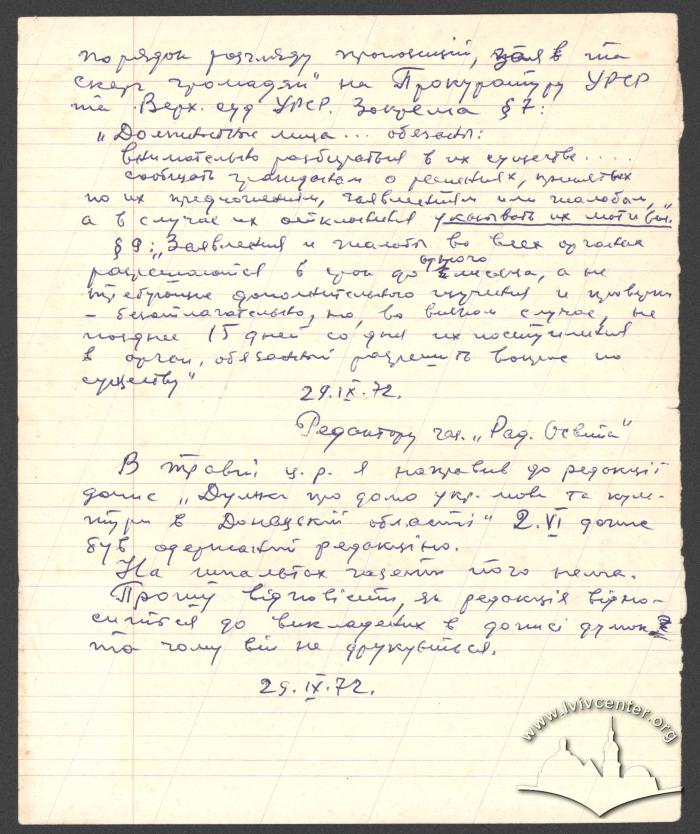 порядок розгляду пропозицій, заяв та
скарг громадян" на Прокуратуру УРСР
та Верх. суд УРСР. Зокрема § 7:
"Должностные лица... обязаны:
внимательно разбираться в их существе ....
сообщать гражданам о решениях, принятых
по их предложениям, заявлениям или жалобам,
а в случае их отклонения указывать их мотивы."
§ 9: "Заявления и жалобы во всех органах
разрешаются в срок до одного месяца, а не
требующие дополнительного изучения и проверки
– безотлагательно, но, во всяком случае, не
позднее 15 дней со дня их поступления
в орган, обязанный разрешить вопрос по
существу"
29.IX.72.
Редактору газ. "Рад. Освіта"
В травні ц.р. я направив до редакції
допис "Думки про долю укр. мови та куль-
тури в Донецькій області" 2.VI допис
був одержаний редакцією.
На шпальтах газети його нема.
Прошу відповісти, як редакція відно-
ситься до викладених в дописі думок
та чому він не друкується.
29.IX.72.
www.lvivcenter.org